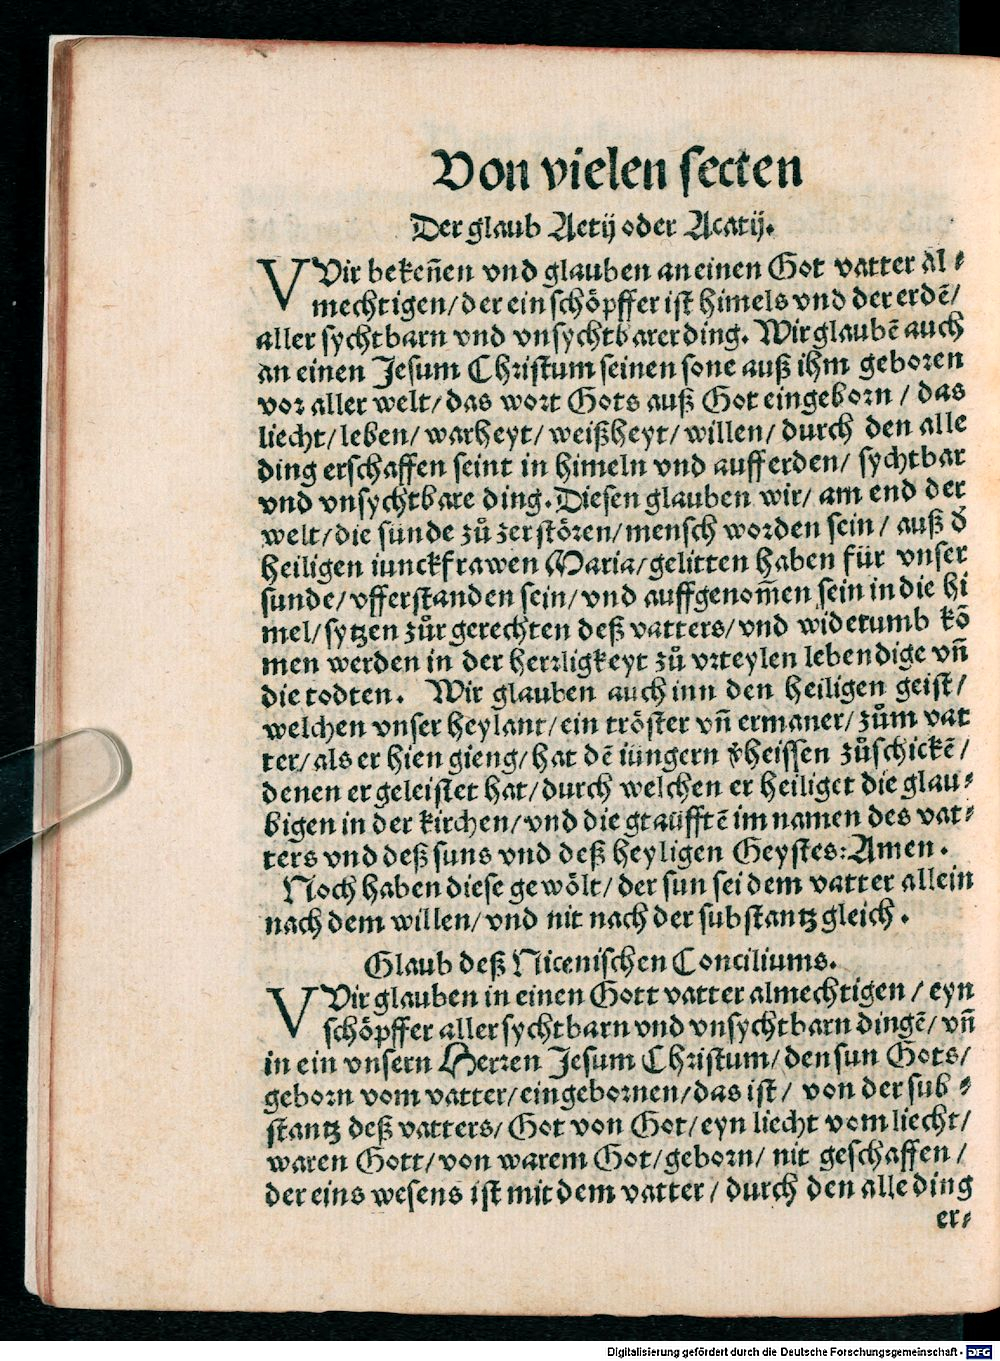 Von vielen secten
Der glaub Aetij oder Acatij.
VVir bekeñen vnd glauben an einen Got vatter al⸗
mechtigen/ der ein schöpffer ist himels vnd der erdē/
aller sychtbarn vnd vnsychtbarer ding. Wir glaubē auch
an einen Jesum Christum seinen sone auß ihm geboren
vor aller welt/ das wort Gots auß Got eingeborn / das
liecht/ leben/ warheyt/ weißheyt/ willen/ durch den alle
ding erschaffen seint in himeln vnd auff erden/ sychtbar
vnd vnsychtbare ding. Diesen glauben wir/ am end der
welt/ die sünde zů zerstören/ mensch worden sein/ auß d̕
heiligen iunckfrawen Maria/ gelitten haben für vnser
sunde/ vfferstanden sein/ vnd auffgenom̄en sein in die hi
mel/ sytzen zůr gerechten deß vatters/ vnd widerumb kō
men werden in der herrligkeyt zů vrteylen lebendige vn̄
die todten. Wir glauben auch inn den heiligen geist/
welchen vnser heylant/ ein tröster vn̄ ermaner/ zům vat
ter/ als er hien gieng/ hat dē iüngern v̕heissen zůschickē/
denen er geleistet hat/ durch welchen er heiliget die glau⸗
bigen in der kirchen/ vnd die gtaüfftē im namen des vat⸗
ters vnd deß suns vnd deß heyligen Geystes: Amen.
Noch haben diese gewölt/ der sun sei dem vatter allein
nach dem willen/ vnd nit nach der substantz gleich.
Glaub deß Nicenischen Conciliums.
VVir glauben in einen Gott vatter almechtigen / eyn
schöpffer aller sychtbarn vnd vnsychtbarn dingē/ vn̄
in ein vnsern Herren Jesum Christum/ den sun Gots/
geborn vom vatter/ eingebornen/ das ist/ von der sub⸗
stantz deß vatters/ Got von Got/ eyn liecht vom liecht/
waren Gott/ von warem Got/ geborn/ nit geschaffen /
der eins wesens ist mit dem vatter / durch den alle ding
er⸗
Digitalisierung gefördert durch die Deutsche Forschungsgemeinschaft - DFG